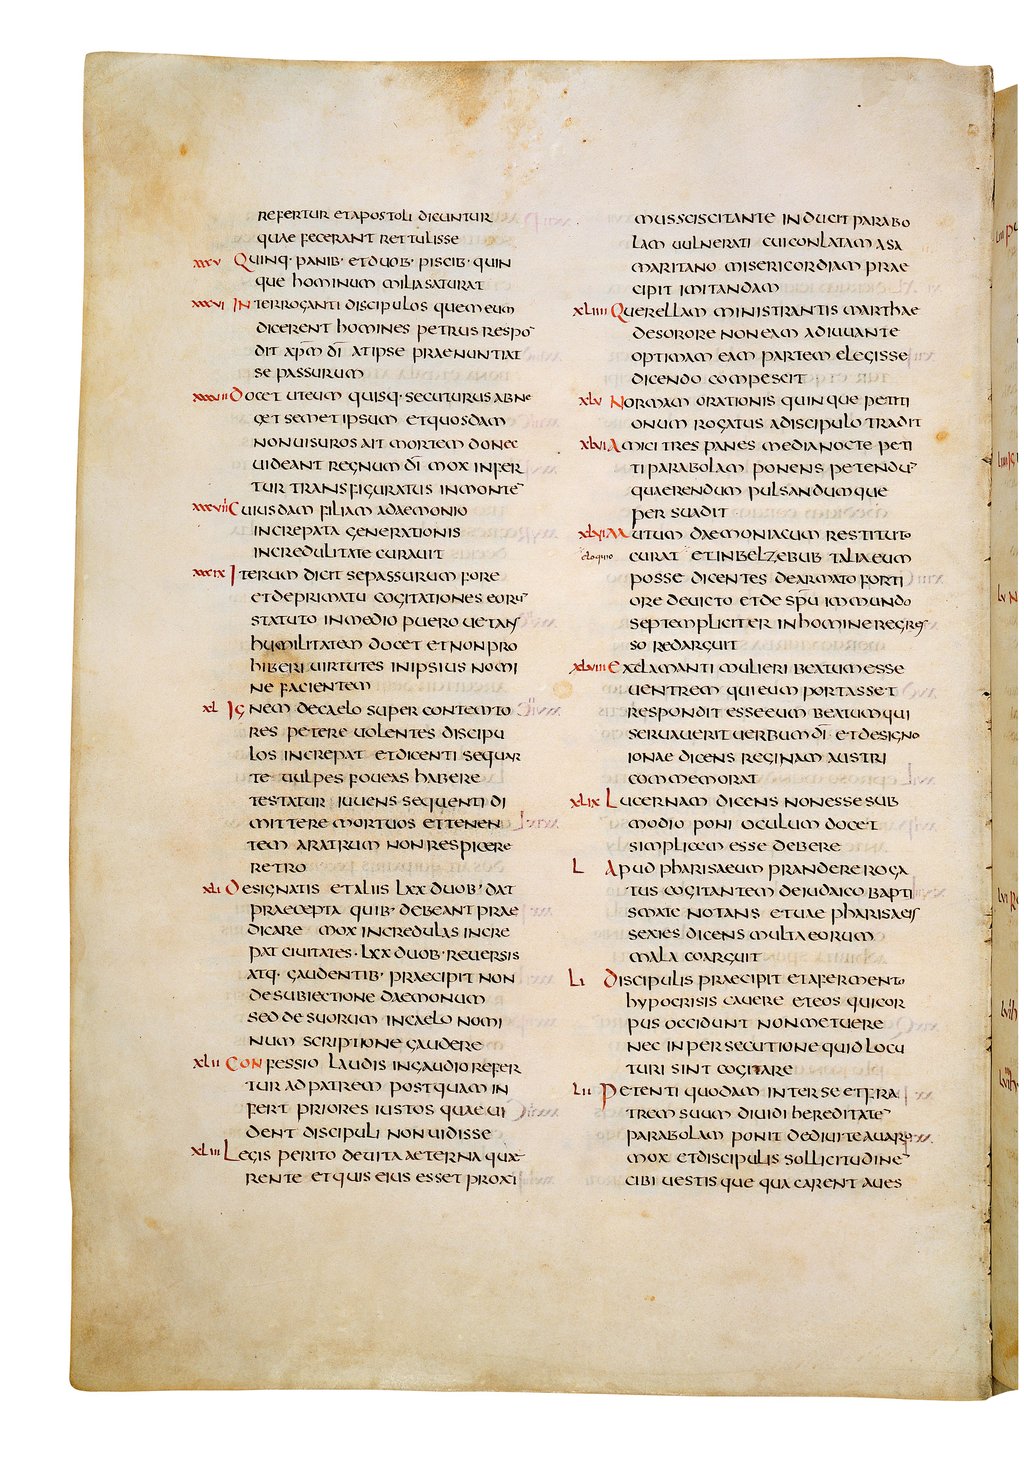 refertur et apostoli dicuntur
quae fecerant rettulisse
xxxv Quinq· panib· et duob· piscib· quin
que hominum milia saturat
xxxvi Interroganti discipulos quem eum
dicerent homines petrus respo̅
dit xp̅m di̅ at ipse praenuntiat
se passurum
xxxvii Docet uteum quisq· secuturus abne
get semet ipsum et quosdam
non uisuros ait mortem donec
uideant regnum di̅ mox infer
tur transfiguratus in monte̅
xxxviii Cuiusdam filiam a daemonio
increpata generationis
incredulitate curauit
xxxix Iterum dicit se passurum fore
et de primatu cogitationes eoru̅
statuto in medio puero uetans
humilitatem docet et non pro
hiberi uirtutes in ipsius nomi
ne facientem
xl Ignem de caelo super contemto
res petere uolentes discipu
los increpat et dicenti sequar
te uulpes foueas habere
testatur iuuens sequenti di
mittere mortuos et tenen
tem aratrum non respicere
retro
xli Designatis et aliis lxx duob· dat
praecepta quib· debeant prae
dicare mox incredulas incre
pat ciuitates· lxx duob· reuersis
atq· gaudentib· praecipit non
de subiectione daemonum
sed de suorum in caelo nomi
num scriptione gaudere
xlii Confessio laudis in gaudio refer
tur ad patrem postquam in
fert priores iustos quae ui
dent discipuli non uidisse
xliii Legis perito de uita aeterna quae
rente et quis eius esset proxi
mus sciscitante inducit parabo
lam uulnerati cui conlatam a sa
maritano misericordiam prae
cipit imitandam
xliiii Querellam ministrantis marthae
de sorore non eam adiuuante
optimam eam partem elegisse
dicendo compescit
xlv Normam orationis quinque petiti
onum rogatus a discipulo tradit
xlvi Amici tres panes media nocte peti
ti parabolam ponens petendu̅
quaerendum pulsandumque
persuadit
xlvii Mutum daemoniacum restituto
eloquio curat et in belzebub talia eum
posse dicentes de armato forti
ore deuicto et de spu̅ immundo
septempliciter in homine regres
so redarguit
xlviii Exclamanti mulieri beatum esse
uentrem qui eum portasset
respondit esse eum beatum qui
seruauerit uerbum di̅ et de signo
ionae dicens reginam austri
commemorat
xlix Lucernam dicens non esse sub
modio poni oculum docet
simplicem esse debere
l Apud pharisaeum prandere roga
tus cogitantem de iudaico bapti
smate notans et uae pharisaeis
sexies dicens multa eorum
mala coarguit
li Discipulis praecipit et a fermento
hypocrisis cauere et eos qui cor
pus occidunt non metuere
nec in persecutione quid locu
turi sint cogitare
lii Petenti quodam inter se et fra
trem suum diuidi hereditate̅
parabolam ponit de diuite auaro
mox et discipulis sollicitudine̅
cibi uestisque qua carent aues